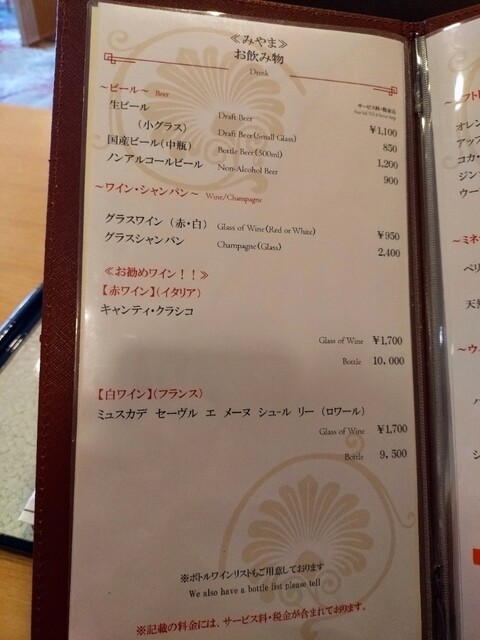 ≪みやま≫
お飲み物
Drink
～ビール～ Beer
サービス料・税金込
生ビール Draft Beer ¥1,100
(小グラス) Draft Beer(Small Glass) 850
国産ビール(中瓶) Bottle Beer(500ml) 1,200
ノンアルコールビール Non-Alcohol Beer 900
～ワイン・シャンパン～ Wine/Champagne
グラスワイン (赤・白) Glass of Wine(Red or White) ¥950
グラスシャンパン Champagne(Glass) 2,400
≪お勧めワイン！！≫
【赤ワイン】(イタリア)
キャンティ・クラシコ
Glass of Wine ¥1,700
Bottle 10,000
【白ワイン】(フランス)
ミュスカデ セーヴル エ メーヌ シュール リー (ロワール)
Glass of Wine ¥1,700
Bottle 9,500
※ボトルワインリストもご用意しております
We also have a bottle list please tell
※記載の料金には、サービス料・税金が含まれております。
オレン
アップ
コカ・
ジン
ウー
～ミネ
ペリ
天然
～ウ